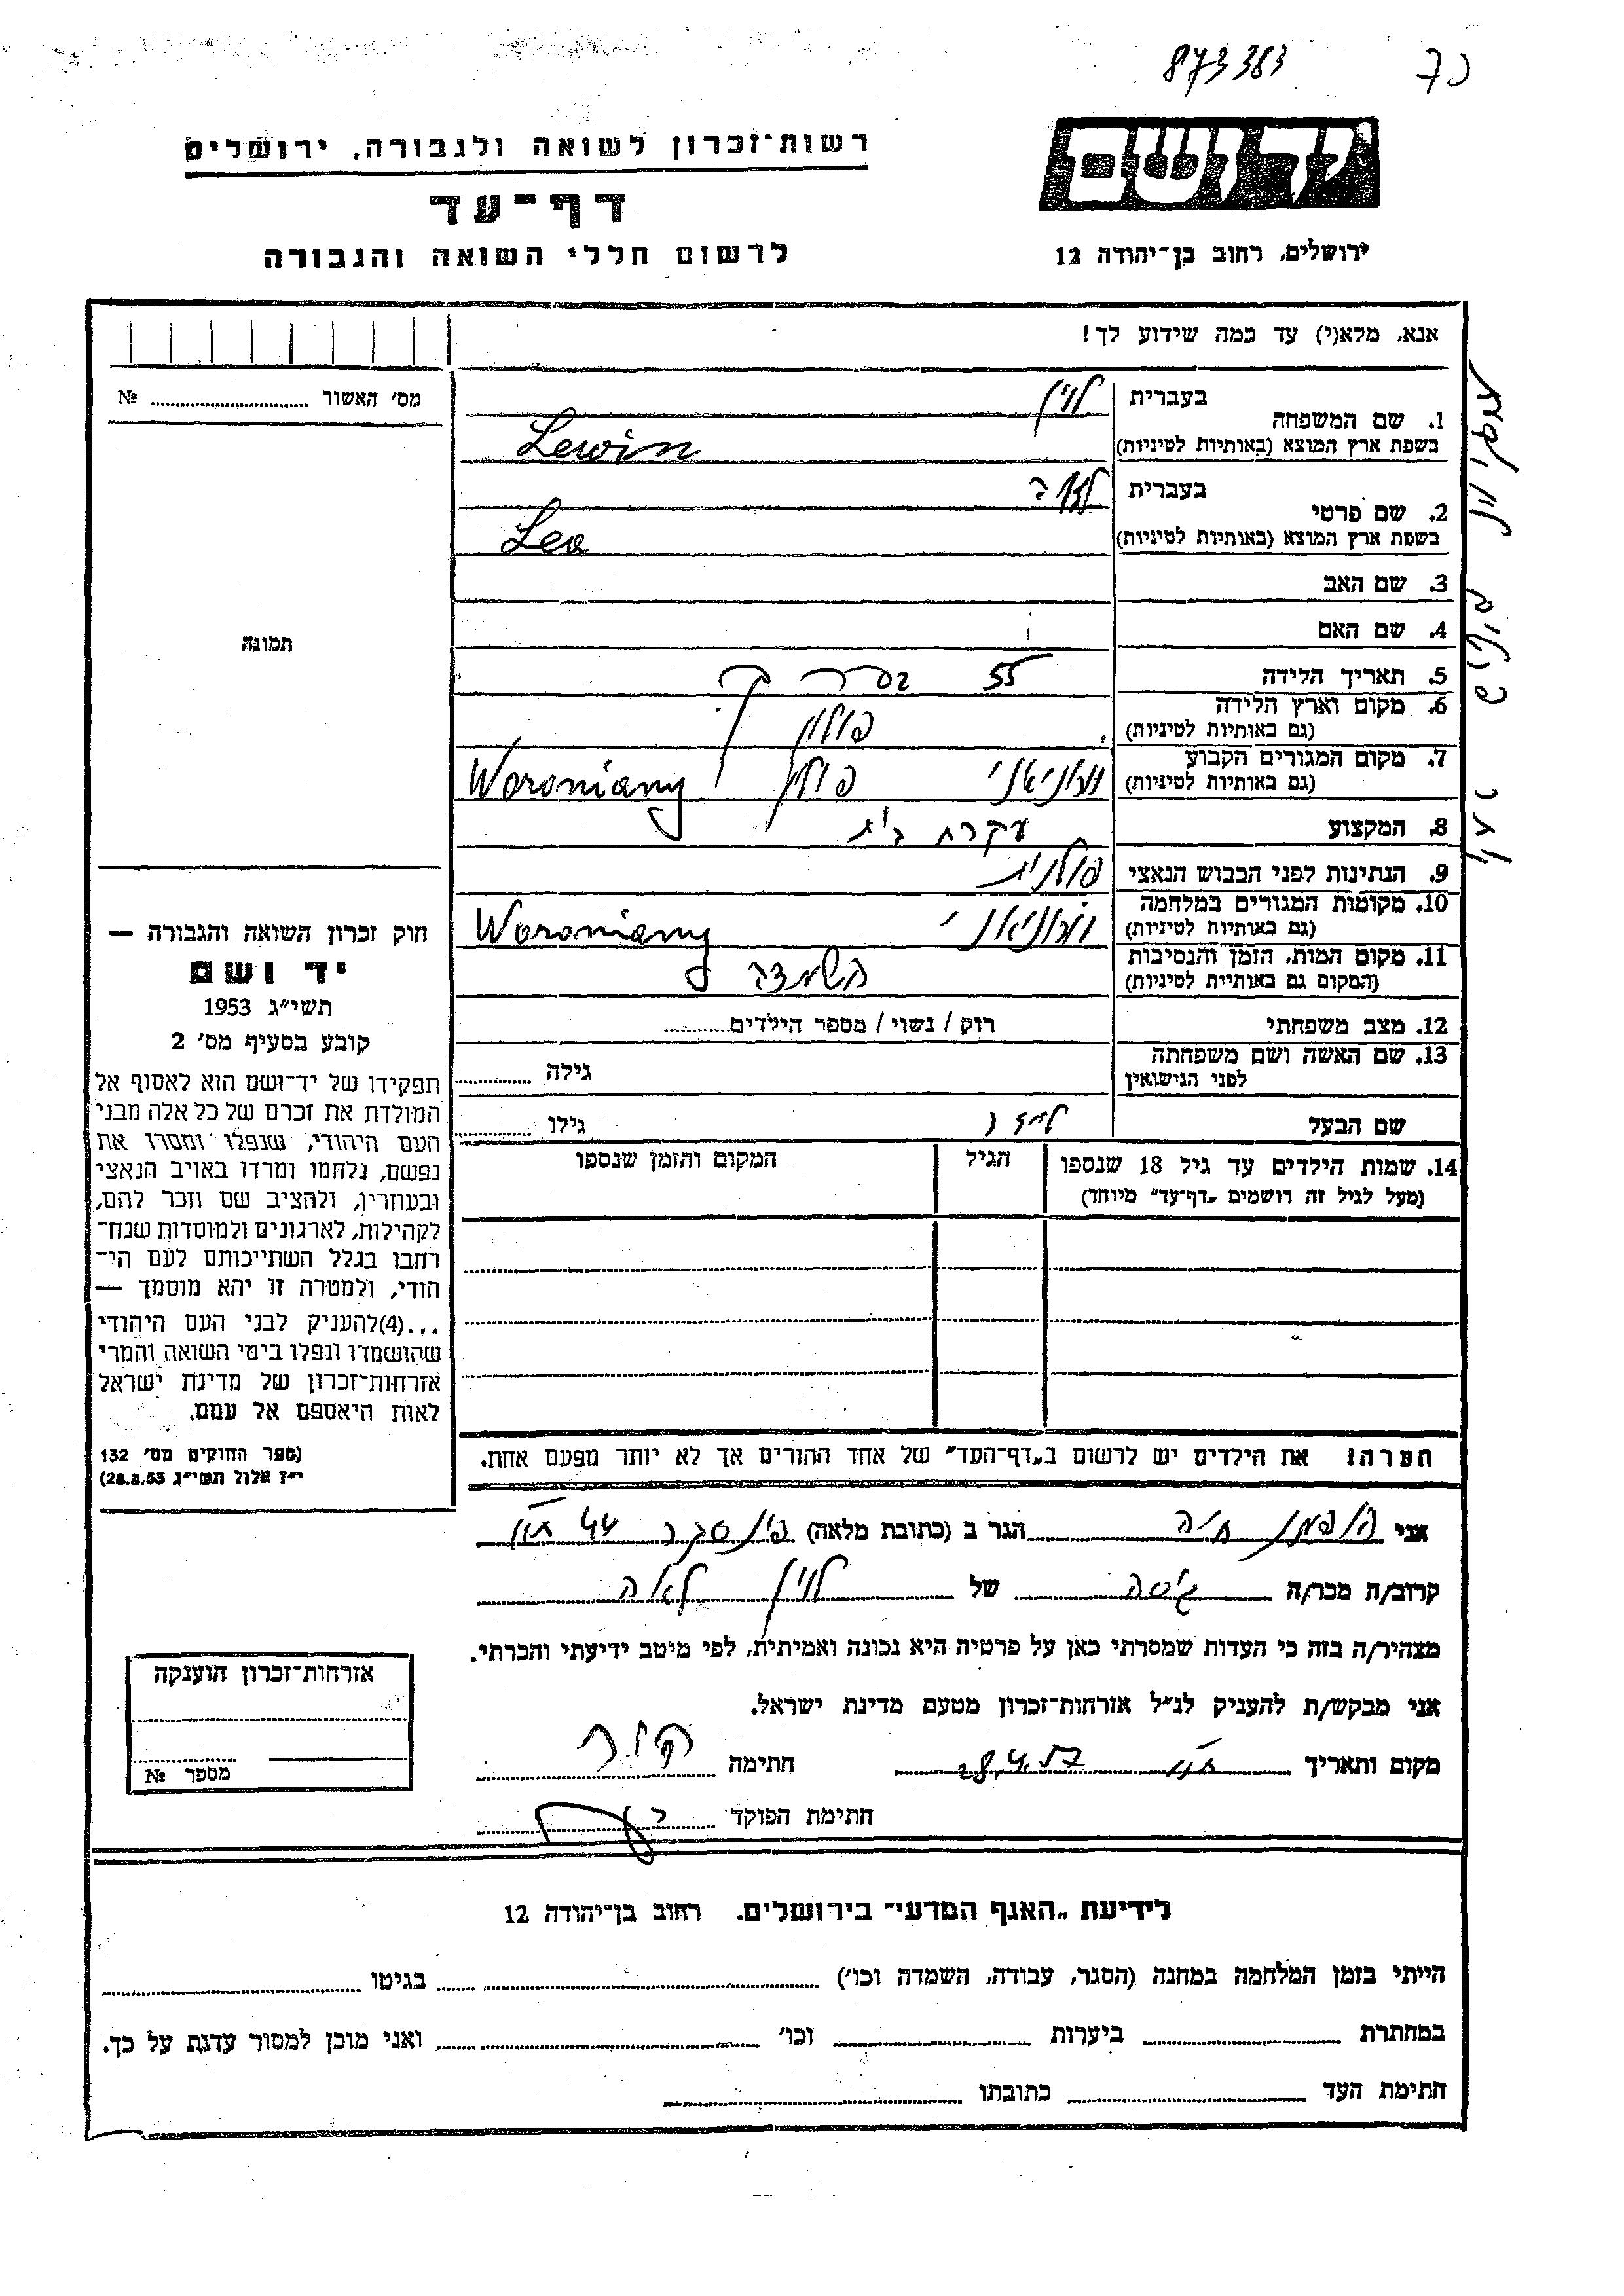 873383
יד ושם
ירושלים, רחוב בן־יהודה 12
רשות־זכרון לשואה ולגבורה, ירושלים
דף־עד
לרשום חללי השואה והגבורה
אנא, מלא(י) עד כמה שידוע לך!
1. שם המשפחה בעברית לוין
בשפת ארץ המוצא (באותיות לטיניות) Lewin
2. שם פרטי בעברית לאה
בשפת ארץ המוצא (באותיות לטיניות) Lea
3. שם האב
4. שם האם
5. תאריך הלידה 55 בערך
6. מקום וארץ הלידה פולין
(גם באותיות לטיניות)
7. מקום המגורים הקבוע וורוניאני פולין Woroniany
(גם באותיות לטיניות)
8. המקצוע עקרת בית
9. הנתינות לפני הכבוש הנאצי פולנית
10. מקומות המגורים במלחמה וורוניאני Woroniany
(גם באותיות לטיניות)
11. מקום המות, הזמן והנסיבות השמדה
(המקום גם באותיות לטיניות)
12. מצב משפחתי רוק / נשוי / מספר הילדים
13. שם האשה ושם משפחתה
לפני הנישואין גילה
שם הבעל גילו
14. שמות הילדים עד גיל 18 שנספו הגיל המקום והזמן שנספו
(מעל לגיל זה רושמים „דף־עד״ מיוחד)
הערה! את הילדים יש לרשום ב„דף־העד״ של אחד ההורים אך לא יותר מפעם אחת.
אני חיה הגר ב (כתובת מלאה) פינסקר 44 ת״א
קרוב/ה מכר/ה גיסה של לוין לאה
מצהיר/ה בזה כי העדות שמסרתי כאן על פרטיה היא נכונה ואמיתית, לפי מיטב ידיעתי והכרתי.
אני מבקש/ת להעניק לנ״ל אזרחות־זכרון מטעם מדינת ישראל.
מקום ותאריך ת״א 28.4.57 חתימה
חתימת הפוקד
מס׳ האשור №
תמונה
חוק זכרון השואה והגבורה —
יד ושם
תשי״ג 1953
קובע בסעיף מס׳ 2
תפקידו של יד־ושם הוא לאסוף אל
המולדת את זכרם של כל אלה מבני
העם היהודי, שנפלו ומסרו את
נפשם, נלחמו ומרדו באויב הנאצי
ובעוזריו, ולהציב שם וזכר להם,
לקהילות, לארגונים ולמוסדות שנח־
רחבו בגלל השתייכותם לעם הי־
הודי, ולמטרה זו יהא מוסמך —
...(4) להעניק לבני העם היהודי
שהושמדו ונפלו בימי השואה והמרי
אזרחות־זכרון של מדינת ישראל
לאות היאספם אל עמם.
(ספר החוקים מס׳ 132
י״ז אלול תשי״ג 28.8.53)
אזרחות־זכרון הוענקה
מספר №
לידיעת „האגף המדעי״ בירושלים, רחוב בן־יהודה 12
הייתי בזמן המלחמה במחנה (הסגר, עבודה, השמדה וכו׳) בגיטו
במחתרת ביערות וכו׳ ואני מוכן למסור עדות על כך.
חתימת העד כתובתו